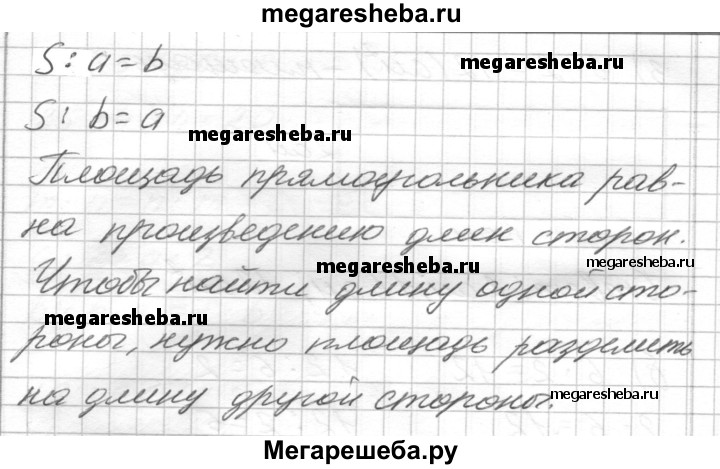 megaresheba.ru
S : a = b
megaresheba.ru
S : b = a
megaresheba.ru
Площадь прямоугольника рав-
на произведению длин сторон.
megaresheba.ru
megaresheba.ru
Чтобы найти длину одной сто-
megaresheba.ru
роны, нужно площадь разделить
на длину другой стороны.
megaresheba.ru
Мегарешеба.ру